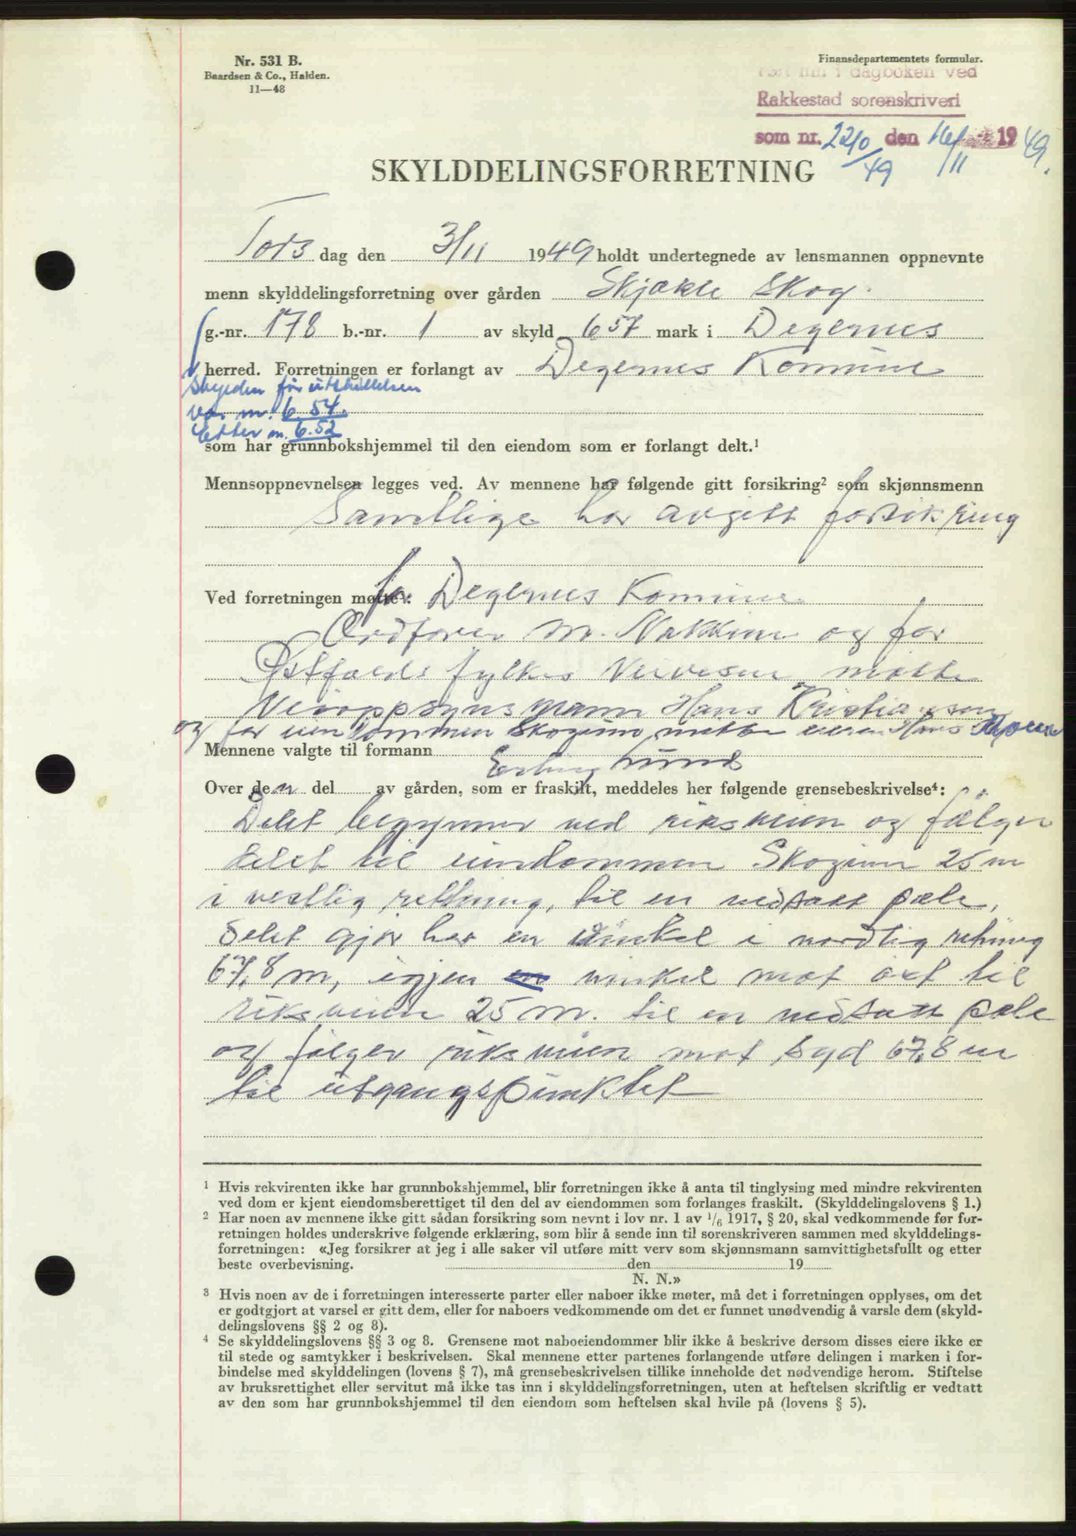 Nr. 531 B.
Baardsen & Co., Halden.
11—48
Finansdepartementets formular.
i dagboken ved
Rakkestad sorenskriveri
som nr. 2210/49 den 11/11 1949.
SKYLDDELINGSFORRETNING
Torsdag den 3/11 1949 holdt undertegnede av lensmannen oppnevnte
menn skylddelingsforretning over gården Skjækle Skog.
g.-nr. 178 b.-nr. 1 av skyld 657 mark i Degernes
herred. Forretningen er forlangt av Degernes Komune
Skylden før utskillelsen
var m. 6.54.
Etter m. 6.52
som har grunnbokshjemmel til den eiendom som er forlangt delt.¹
Mennsoppnevnelsen legges ved. Av mennene har følgende gitt forsikring² som skjønnsmenn
Samtlige har avgitt forsikring
Ved forretningen møtte: for Degernes Komune
Ordfører M. Nakkim og for
Østfolds fylkes Veivesen møtte
Veioppsynsmann Hans Kristiansen
og for eiendommen Skogimo møtte eieren Hans
Mennene valgte til formann Erling Lund
Over den del av gården, som er fraskilt, meddeles her følgende grensebeskrivelse⁴:
Delet begynner ved riksveien og følger
delet til eiendommen Skogimo 25 m
i vestlig retning, til en nedsatt pæle,
Delet gjør her en vinkel i nordlig retning
67,8 m, igjen en vinkel mot øst til
riksveien 25 m. til en nedsatt pæle
og følger riksveien mot syd 67,8 m
til utgangspunktet
¹ Hvis rekvirenten ikke har grunnbokshjemmel, blir forretningen ikke å anta til tinglysing med mindre rekvirenten
ved dom er kjent eiendomsberettiget til den del av eiendommen som forlanges fraskilt. (Skylddelingslovens § 1.)
² Har noen av mennene ikke gitt sådan forsikring som nevnt i lov nr. 1 av ¹/₆ 1917, § 20, skal vedkommende før for-
retningen holdes underskrive følgende erklæring, som blir å sende inn til sorenskriveren sammen med skylddelings-
forretningen: «Jeg forsikrer at jeg i alle saker vil utføre mitt verv som skjønnsmann samvittighetsfullt og etter
beste overbevisning. den 19
N. N.»
³ Hvis noen av de i forretningen interesserte parter eller naboer ikke møter, må det i forretningen opplyses, om det
er godtgjort at varsel er gitt dem, eller for naboers vedkommende om det er funnet unødvendig å varsle dem (skyld-
delingslovens §§ 2 og 8).
⁴ Se skylddelingslovens §§ 3 og 8. Grensene mot naboeiendommer blir ikke å beskrive dersom disses eiere ikke er
til stede og samtykker i beskrivelsen. Skal mennene etter partenes forlangende utføre delingen i marken i for-
bindelse med skylddelingen (lovens § 7), må grensebeskrivelsen tillike inneholde det nødvendige herom. Stiftelse
av bruksrettighet eller servitut må ikke tas inn i skylddelingsforretningen, uten at heftelsen skriftlig er vedtatt
av den som har grunnbokshjemmel til den eiendom som heftelsen skal hvile på (lovens § 5).